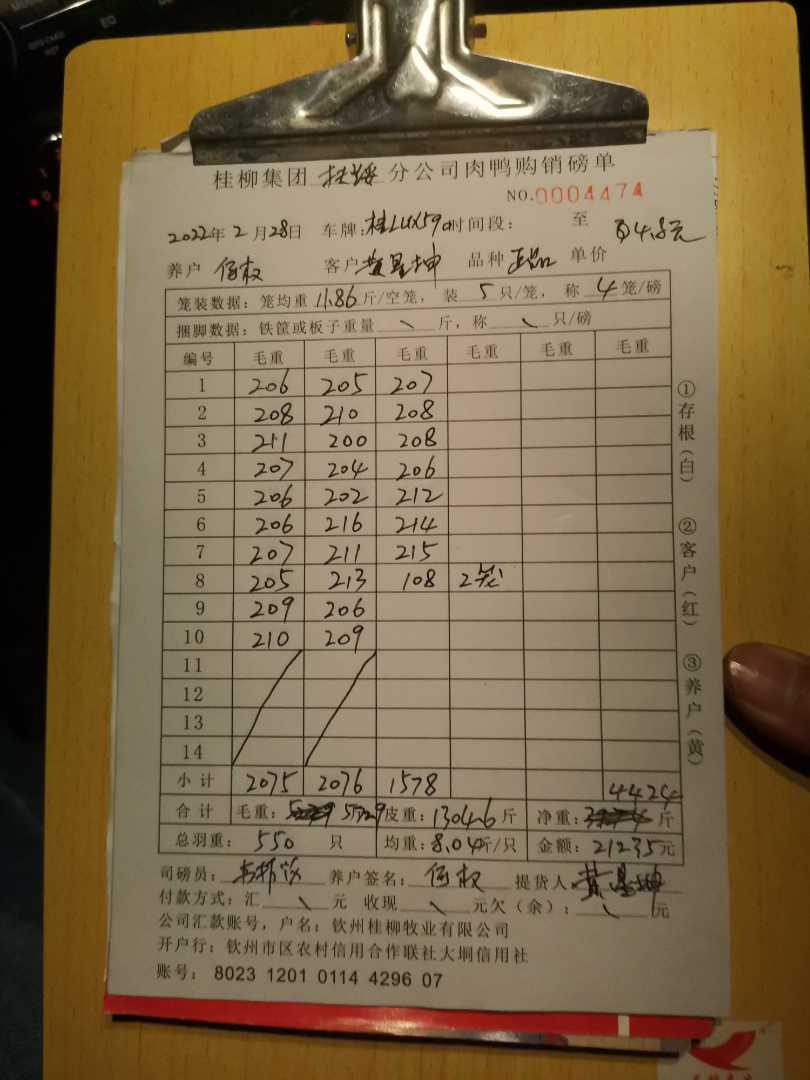 桂柳集团 扶绥 分公司肉鸭购销磅单
NO.0004474
2022年2月28日 车牌:桂LUX590 时间段: 至
养户 何权 客户 黄星坤 品种 正品 单价 4.8元
笼装数据:笼均重11.86斤/空笼,装5只/笼,称4笼/磅
捆脚数据:铁筐或板子重量 \ 斤,称 \ 只/磅
编号 毛重 毛重 毛重 毛重 毛重 毛重
1 206 205 207
2 208 210 208
3 211 200 208
4 207 204 206
5 206 202 212
6 206 216 214
7 207 211 215
8 205 213 108 2笼
9 209 206
10 210 209
11
12
13
14
小计 2075 2076 1578
合计 毛重:5729 皮重:1304.6斤 净重:4424斤
总羽重:550只 均重:8.04斤/只 金额:21235元
司磅员: 养户签名:何权 提货人:黄星坤
付款方式:汇 \ 元 收现 \ 元欠(余): \ 元
公司汇款账号,户名:钦州桂柳牧业有限公司
开户行:钦州市区农村信用合作联社大垌信用社
账号:8023 1201 0114 4296 07
①存根(白) ②客户(红) ③养户(黄)